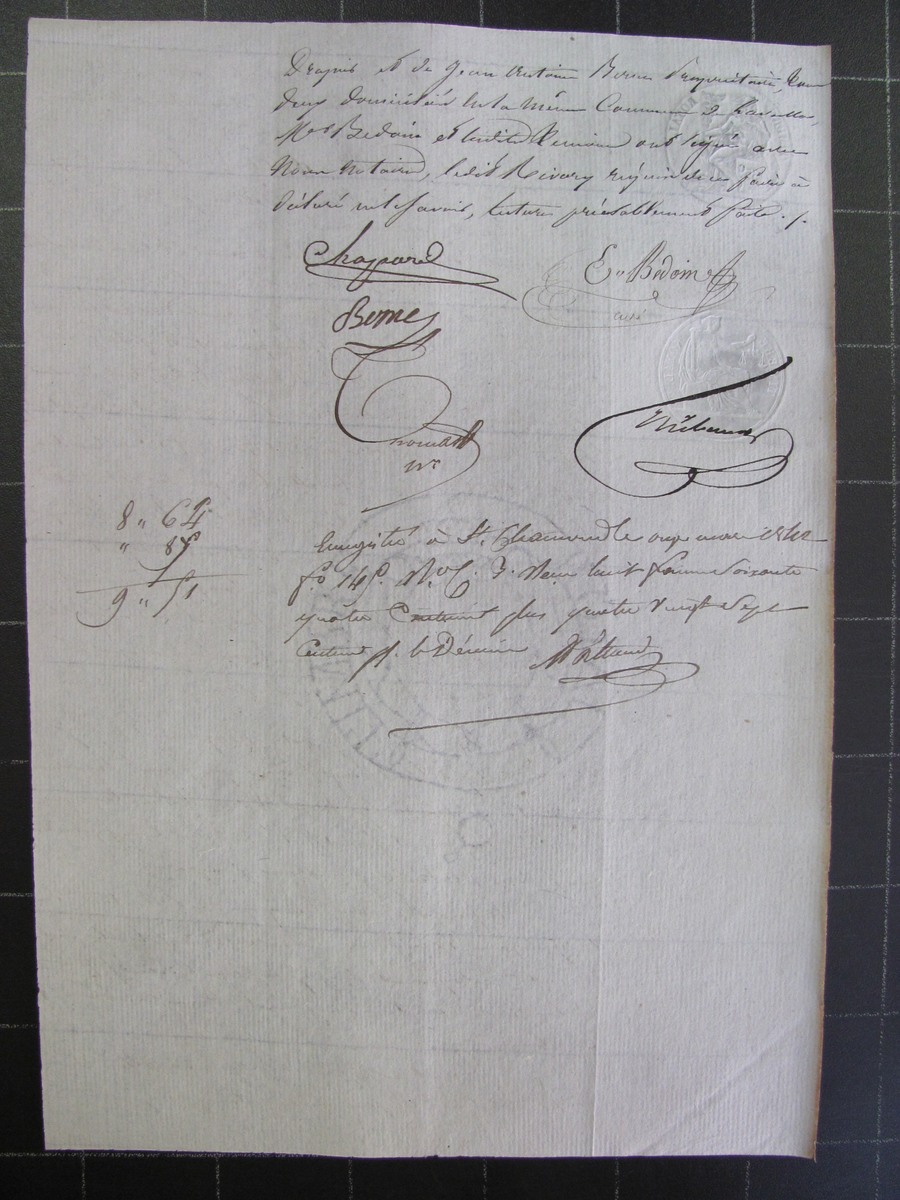 et de Jean Antoine Berne Propriétaire, tous
deux domiciliés en la même Commune de Lavalla,
Mrs Bedoin et lesdits témoins ont signé avec
Nous Notaire, ledit Rivory requis de ce faire a
déclaré ne le savoir, lecture préalablement faite ./.
Chaspoul
E. Bedoin
curé
Berne
Thomas
nre
8 " 64
" 87
9 " 51
Enregistré à St. Chamond le onze mars 1842
fo. 145. Vo. C. 7. Reçu huit francs soixante
quatre centimes plus quatre vingt sept
centimes pr. le Décime